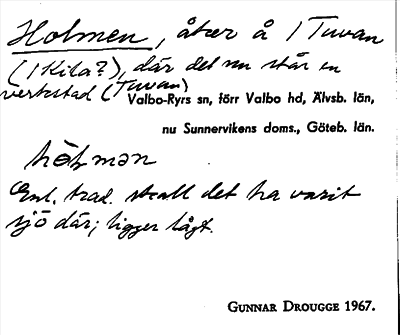 Holmen, åker å 1 Tuvan
(1 Kila?), där det nu står en
verkstad (Tuvan)
Valbo-Ryrs sn, förr Valbo hd, Älvsb. län,
nu Sunnervikens doms., Göteb. län.
Enl. trad. skall det ha varit
sjö där; ligger lågt.
GUNNAR DROUGGE 1967.